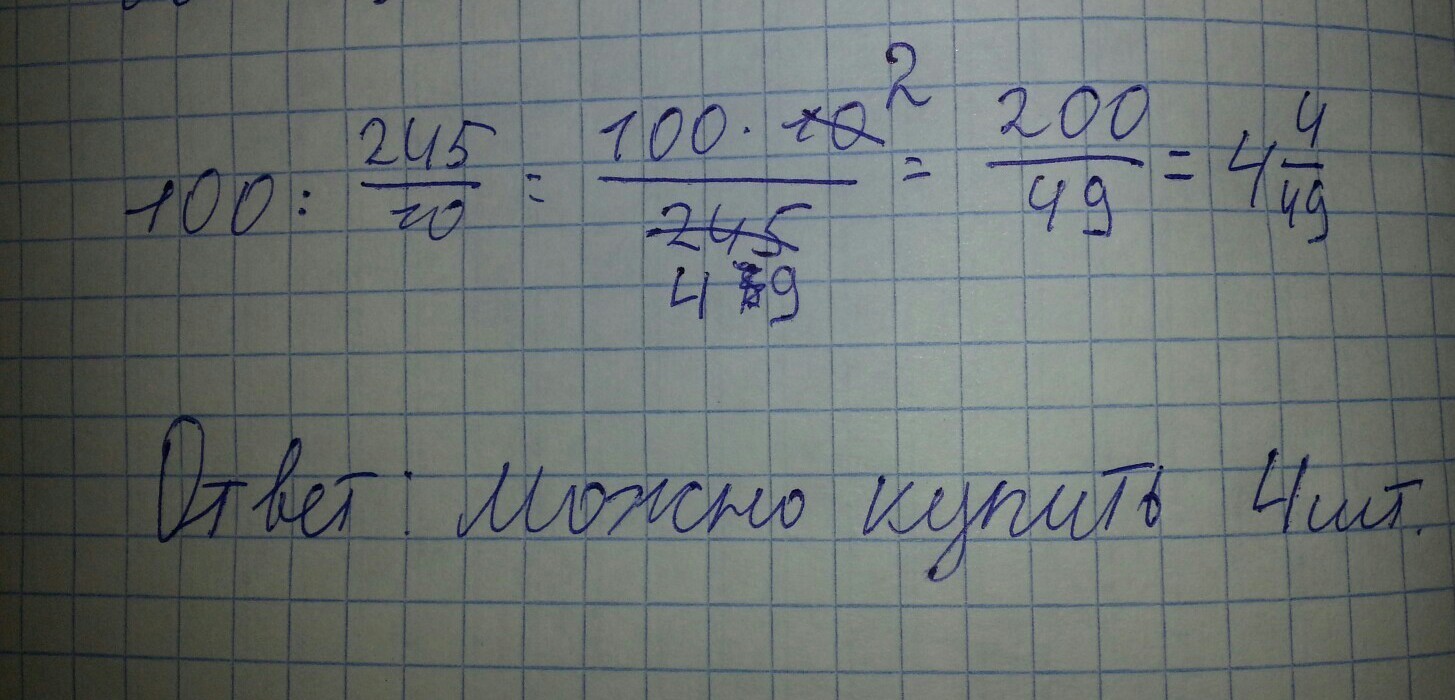 100 : 245/10 = 100 · 10 2 / 245 49 = 200/49 = 4 4/49
Ответ: Можно купить 4 шт.